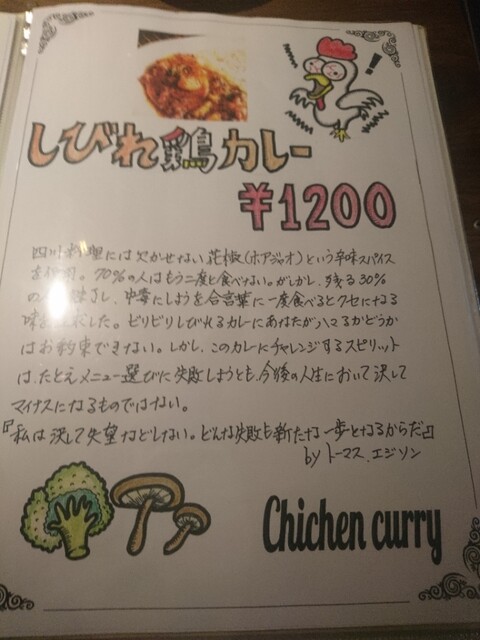 !
しびれ鶏カレー
¥1200
四川料理には欠かせない花椒(ホアジャオ)という辛味スパイス
を使用。70%の人はもう二度と食べない。がしかし、残る30%
の人 し、中毒にしようを合言葉に一度食べるとクセになる
味を しました。ビリビリしびれるカレーにあなたがハマるかどうか
はお約束できない。しかし、このカレーにチャレンジするスピリット
は、たとえメニュー選びに失敗しようとも、今後の人生において決して
マイナスになるものではない。
『私は決して失望などしない。どんな失敗も新たな一歩となるからだ』
by トーマス.エジソン
Chichen curry